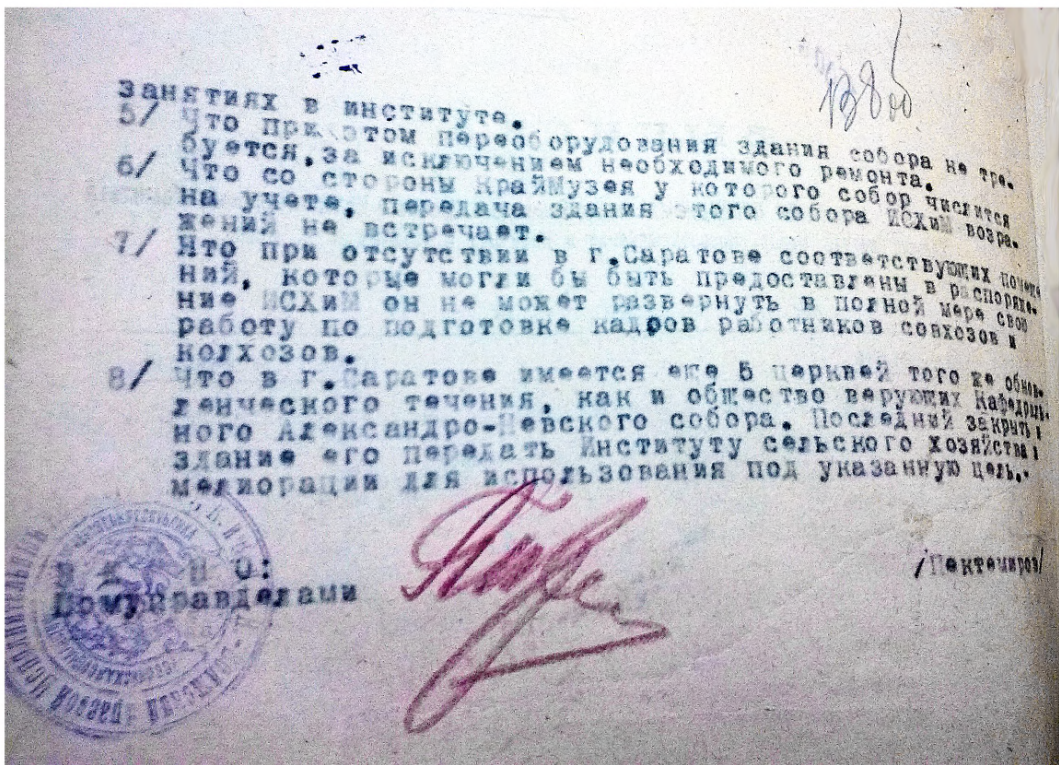 138 об
занятиях в институте.
5/ Что при этом переоборудования здания собора не тре-
буется, за исключением необходимого ремонта.
6/ Что со стороны КрайМузея у которого собор числится
на учете, передача здания этого собора ИСХиМ возра-
жений не встречает.
7/ Что при отсутствии в г.Саратове соответствующих помеще
ний, которые могли бы быть предоставлены в распоряже-
ние ИСХиМ он не может развернуть в полной мере свою
работу по подготовке кадров работников совхозов и
колхозов.
8/ Что в г.Саратове имеется еще 5 церквей того же обнов-
ленческого течения, как и общество верующих Кафедраль-
ного Александро-Невского собора. Последний закрыть и
здание его передать Институту сельского хозяйства и
мелиорации для использования под указанную цель.
Помуправделами
/Пектемиров/